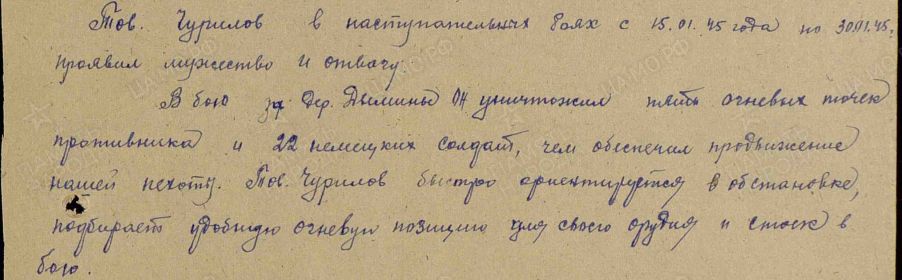 Тов. Чурилов в наступательных боях с 15.01.45 года по 30.01.45.
проявил мужество и отвагу
В бою за дер. Дымины он уничтожил пять огневых точек
противника и 22 немецких солдат, чем обеспечил продвижение
нашей пехоты. Тов. Чурилов быстро ориентируется в обстановке,
подбирает удобную огневую позицию для своего орудия и стоек в
бою.